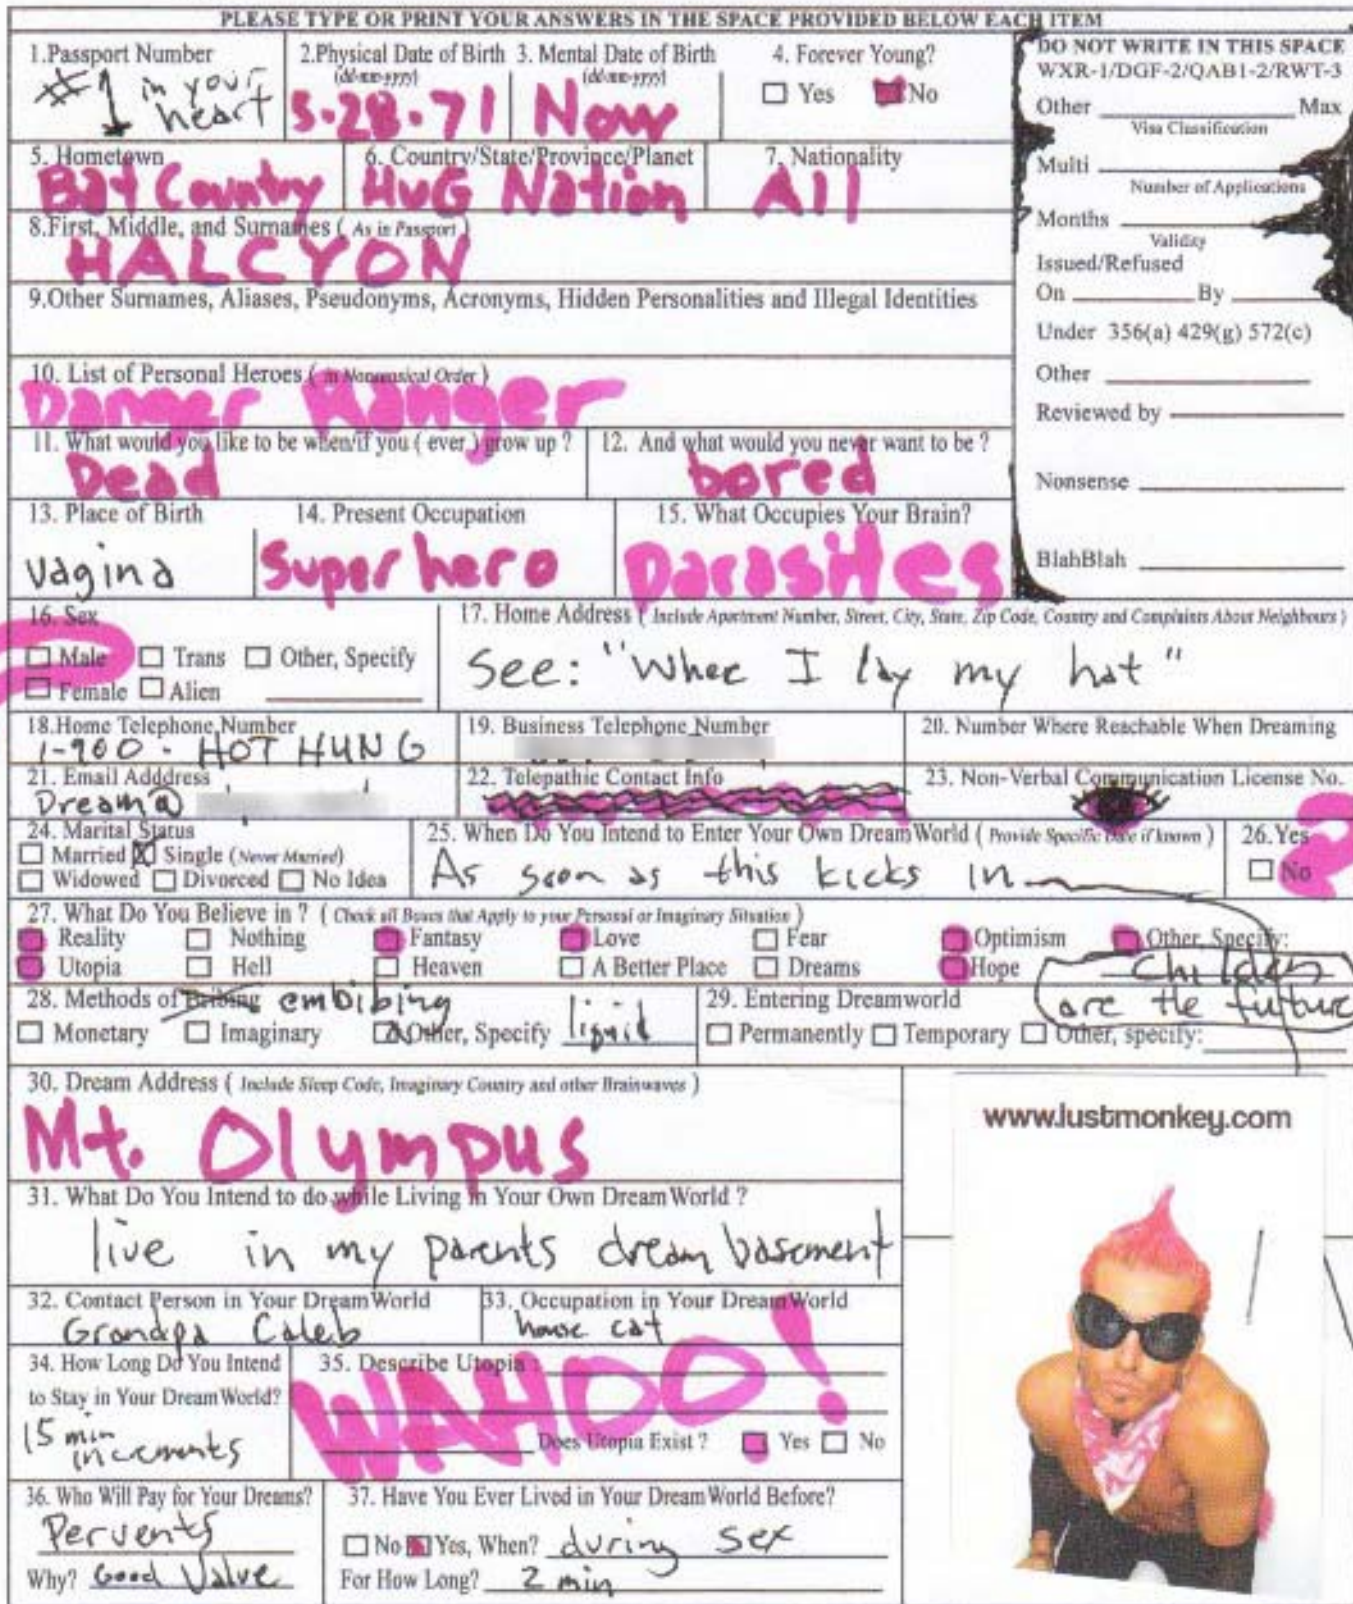 PLEASE TYPE OR PRINT YOUR ANSWERS IN THE SPACE PROVIDED BELOW EACH ITEM
1.Passport Number
#1 in your heart
2.Physical Date of Birth
(dd-mm-yyyy)
5.28.71
3. Mental Date of Birth
(dd-mm-yyyy)
Now
4. Forever Young?
Yes No
DO NOT WRITE IN THIS SPACE
WXR-1/DGF-2/QAB1-2/RWT-3
Other Max
Visa Classification
Multi
Number of Applications
Months
Validity
Issued/Refused
On By
Under 356(a) 429(g) 572(c)
Other
Reviewed by
Nonsense
BlahBlah
5. Hometown
Bat Country
6. Country/State/Province/Planet
HuG Nation
7. Nationality
All
8.First, Middle, and Surnames ( As in Passport )
HALCYON
9.Other Surnames, Aliases, Pseudonyms, Acronyms, Hidden Personalities and Illegal Identities
10. List of Personal Heroes ( in Nonmusical Order )
Danger Ranger
11. What would you like to be when/if you ( ever ) grow up ?
Dead
12. And what would you never want to be ?
bored
13. Place of Birth
vagina
14. Present Occupation
Superhero
15. What Occupies Your Brain?
Parasites
16. Sex
Male Trans Other, Specify
Female Alien
17. Home Address ( Include Apartment Number, Street, City, State, Zip Code, Country and Complaints About Neighbours )
See: "Whee I lay my hat"
18.Home Telephone Number
1-900 - HOT HUNG
19. Business Telephone Number
20. Number Where Reachable When Dreaming
21. Email Adddress
Dream@
22. Telepathic Contact Info
23. Non-Verbal Communication License No.
24. Marital Status
Married Single (Never Married)
Widowed Divorced No Idea
25. When Do You Intend to Enter Your Own DreamWorld ( Provide Specific Date if known )
As soon as this kicks in
26.Yes
No
?
27. What Do You Believe in ? ( Check all Boxes that Apply to your Personal or Imaginary Situation )
Reality Nothing Fantasy Love Fear Optimism Other, Specify:
Utopia Hell Heaven A Better Place Dreams Hope
Children are the future
28. Methods of Bribing embibing
Monetary Imaginary Other, Specify liquid
29. Entering Dreamworld
Permanently Temporary Other, specify:
30. Dream Address ( Include Sleep Code, Imaginary Country and other Brainwaves )
Mt. Olympus
31. What Do You Intend to do while Living in Your Own DreamWorld ?
live in my parents dream basement
32. Contact Person in Your DreamWorld
Grandpa Caleb
33. Occupation in Your DreamWorld
house cat
34. How Long Do You Intend
to Stay in Your DreamWorld?
15 min
increments
35. Describe Utopia :
WAHOO!
Does Utopia Exist ? Yes No
36. Who Will Pay for Your Dreams?
Perverts
Why? Good Value
37. Have You Ever Lived in Your DreamWorld Before?
No Yes, When? during sex
For How Long? 2 min
www.lustmonkey.com